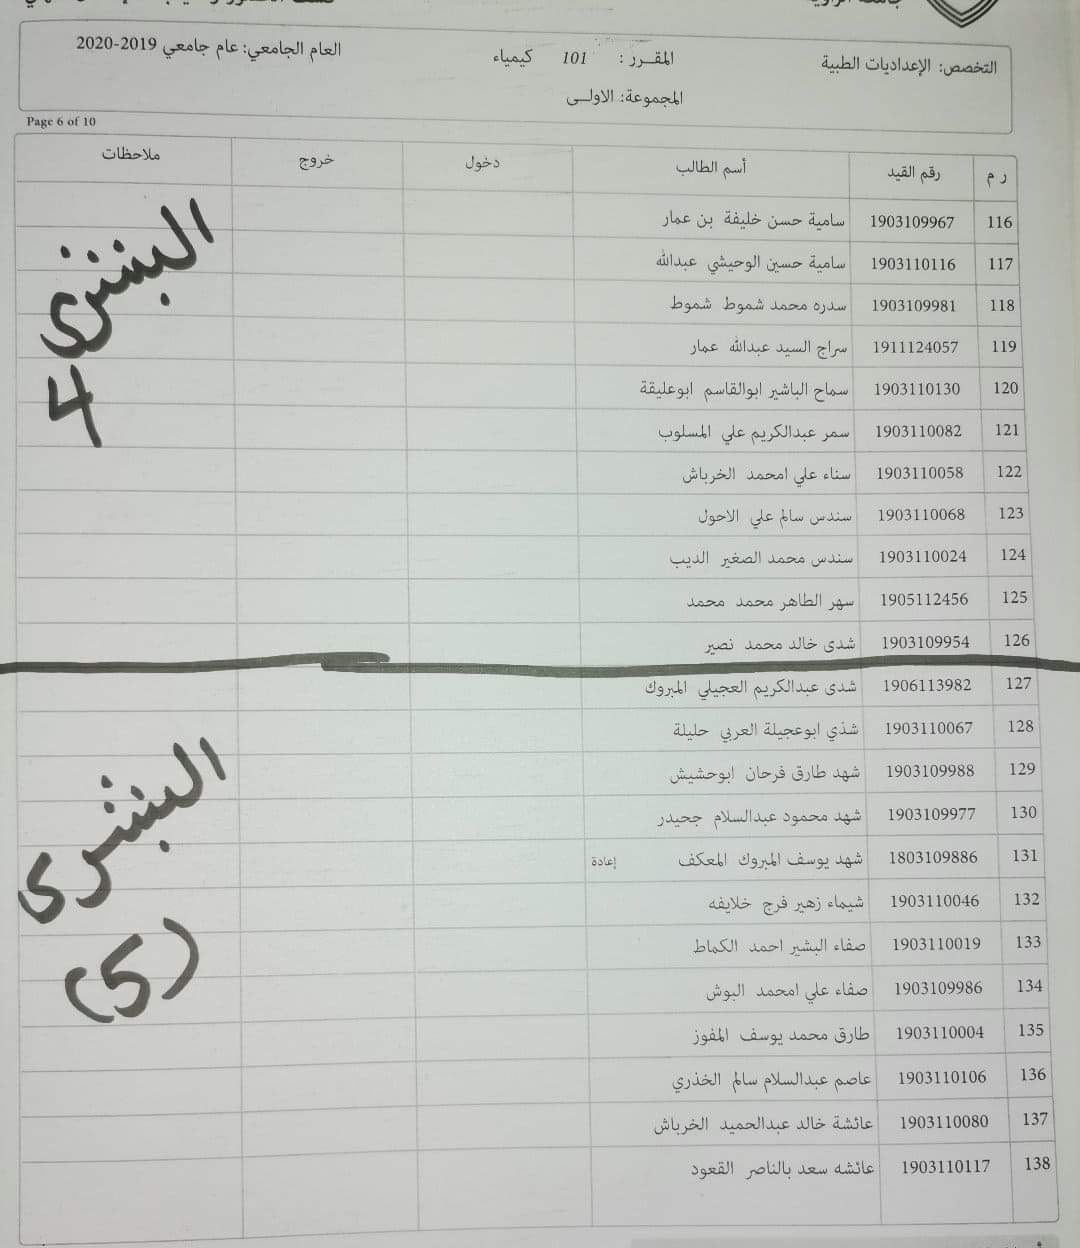 التخصص: الإعداديات الطبية المقـرر : 101 كيمياء العام الجامعي: عام جامعي 2019-2020
المجموعة: الاولـى
Page 6 of 10
ر م رقم القيد أسم الطالب دخول خروج ملاحظات
116 1903109967 سامية حسن خليفة بن عمار
117 1903110116 سامية حسين الوحيشي عبدالله
118 1903109981 سدره محمد شموط شموط
119 1911124057 سراج السيد عبدالله عمار
120 1903110130 سماح الباشير ابوالقاسم ابوعليقة
121 1903110082 سمر عبدالكريم علي المسلوب
122 1903110058 سناء علي امحمد الخرباش
123 1903110068 سندس سالم علي الاحول
124 1903110024 سندس محمد الصغير الديب
125 1905112456 سهر الطاهر محمد محمد
126 1903109954 شدى خالد محمد نصير
البشرى
4
127 1906113982 شدى عبدالكريم العجيلي المبروك
128 1903110067 شذي ابوعجيلة العربي حليلة
129 1903109988 شهد طارق فرحان ابوحشيش
130 1903109977 شهد محمود عبدالسلام جحيدر
131 1803109886 شهد يوسف المبروك المعكف إعادة
132 1903110046 شيماء زهير فرج خلايفه
133 1903110019 صفاء البشير احمد الكماط
134 1903109986 صفاء علي امحمد البوش
135 1903110004 طارق محمد يوسف المفوز
136 1903110106 عاصم عبدالسلام سالم الخذري
137 1903110080 عائشة خالد عبدالحميد الخرباش
138 1903110117 عائشه سعد بالناصر القعود
البشرى
(5)